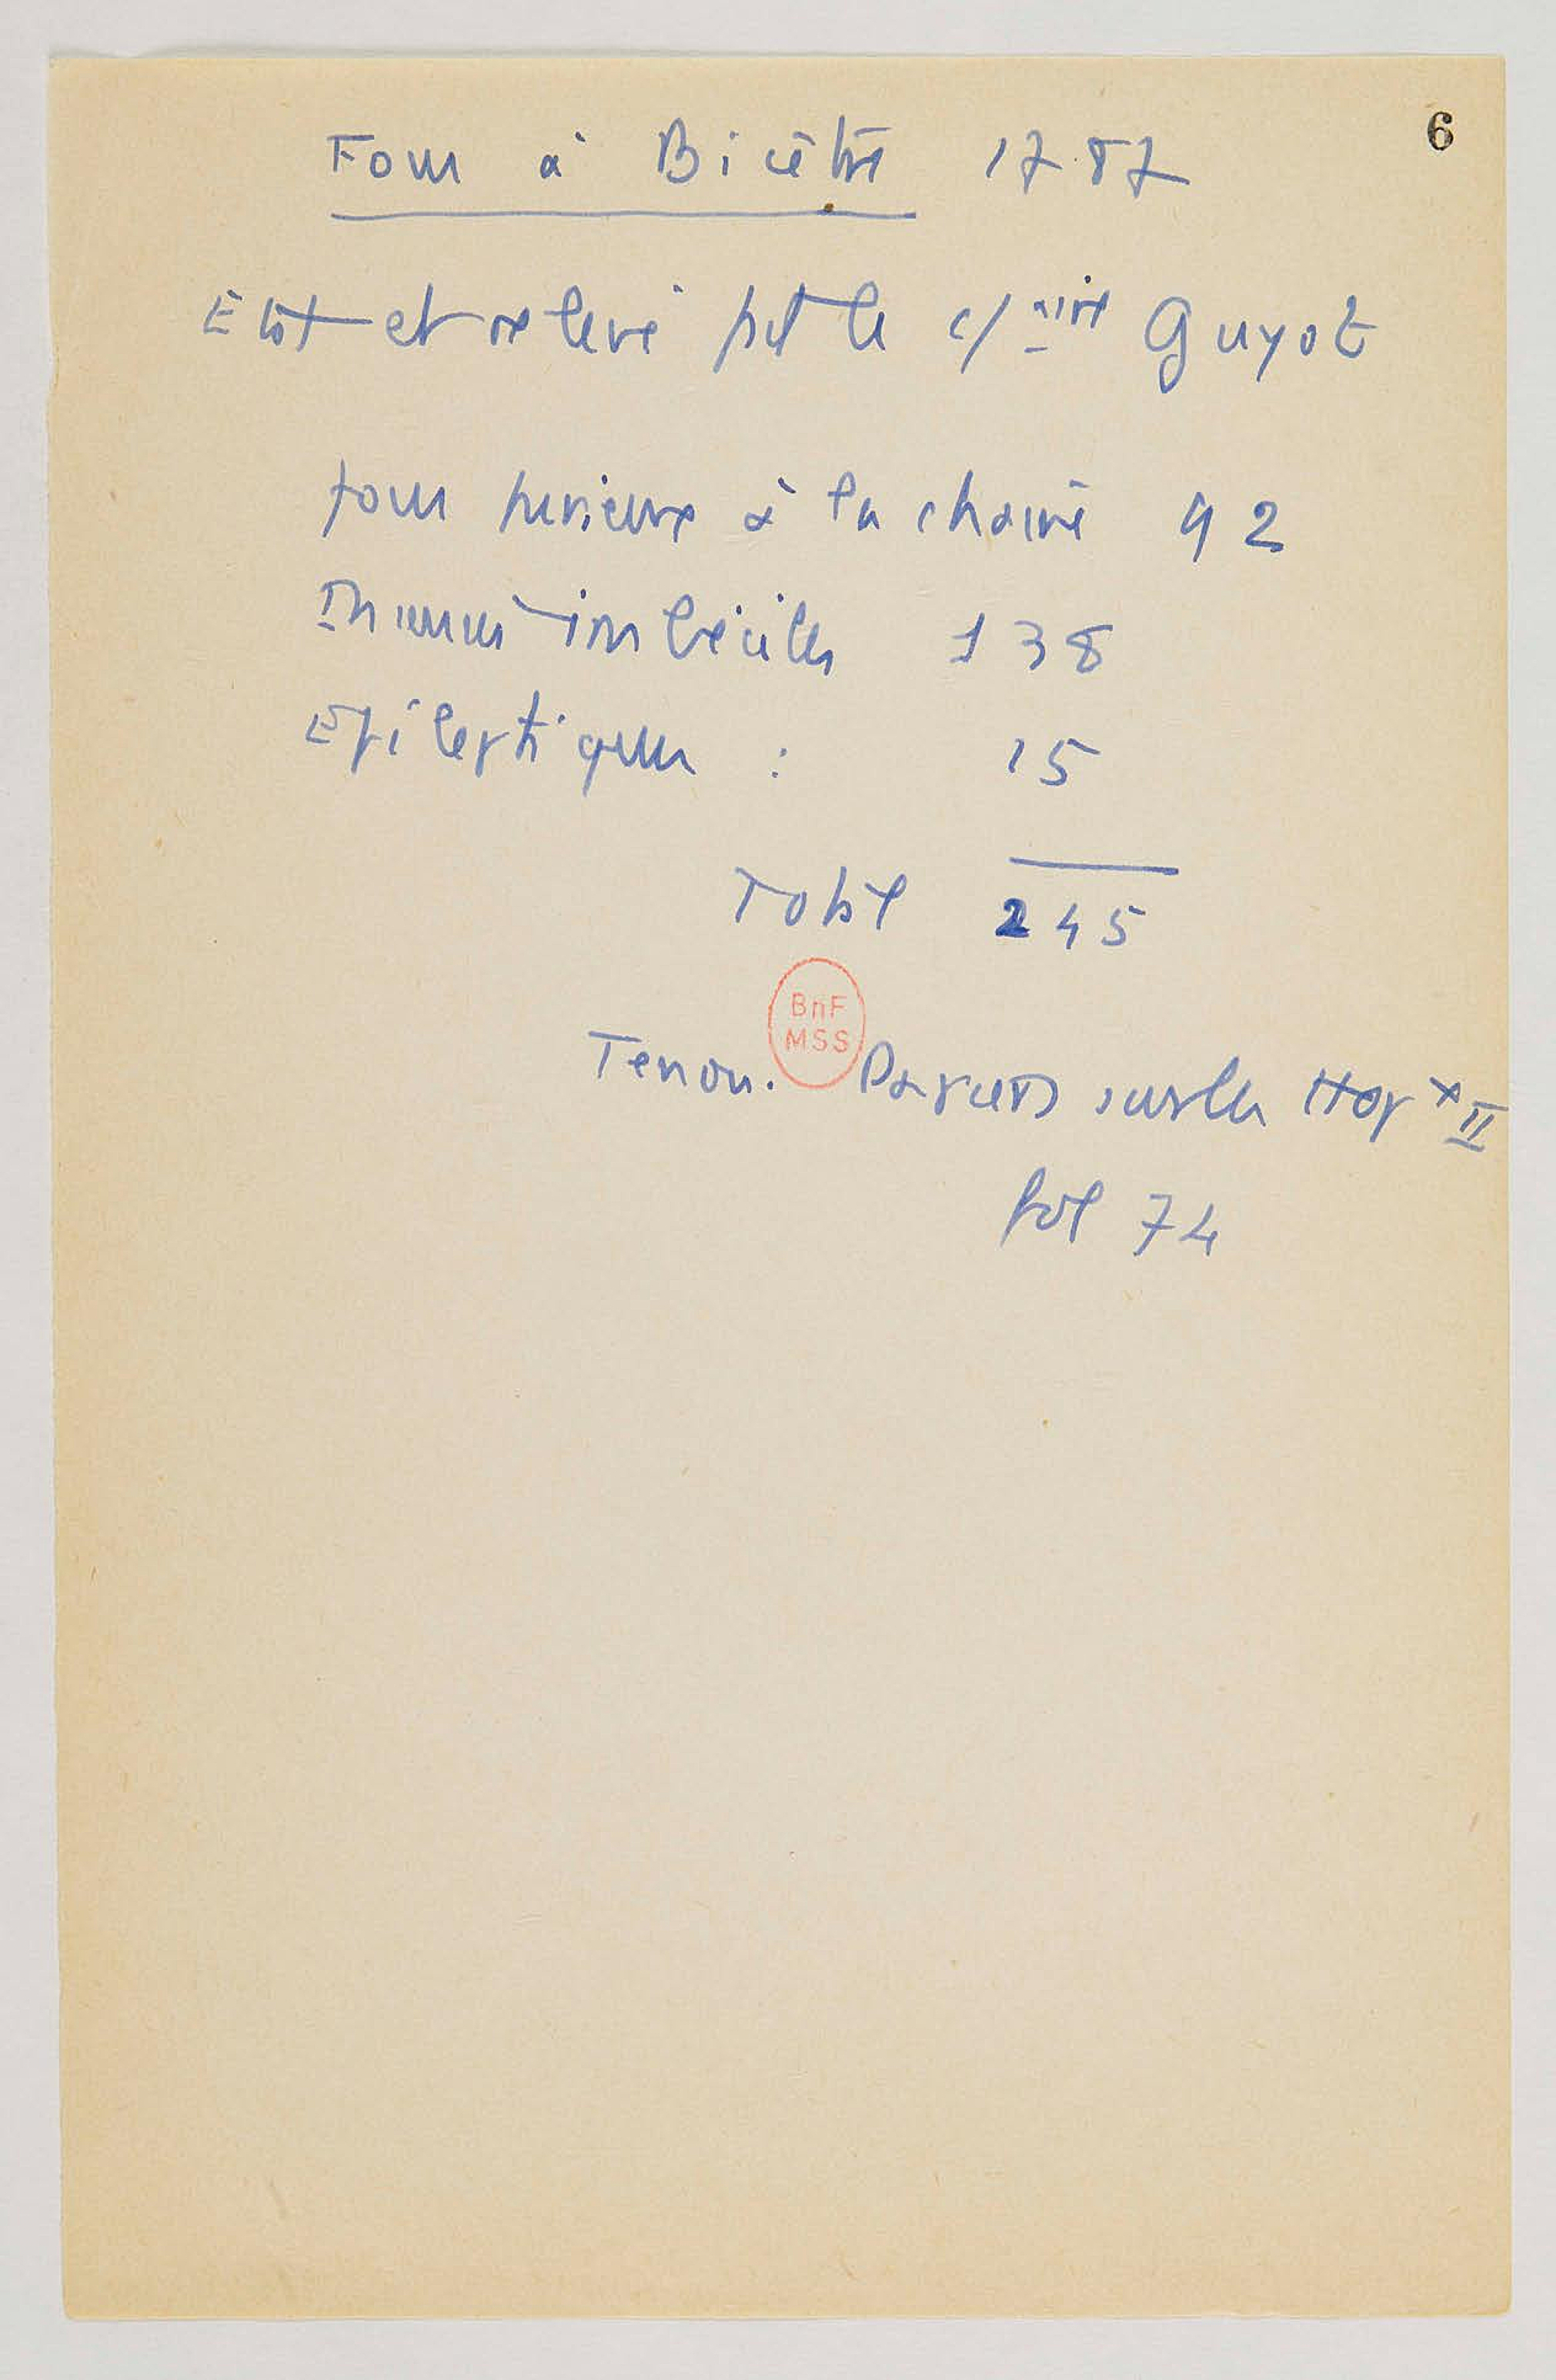 6
Fous à Bicêtre 1787
Etat et relevé par le c/aire Guyot
fous furieux à la chaîne 92
Insensés imbéciles 138
Epileptiques : 15
Total 245
BnF
MSS
Tenon. Papiers sur les Hopx II
fol 74